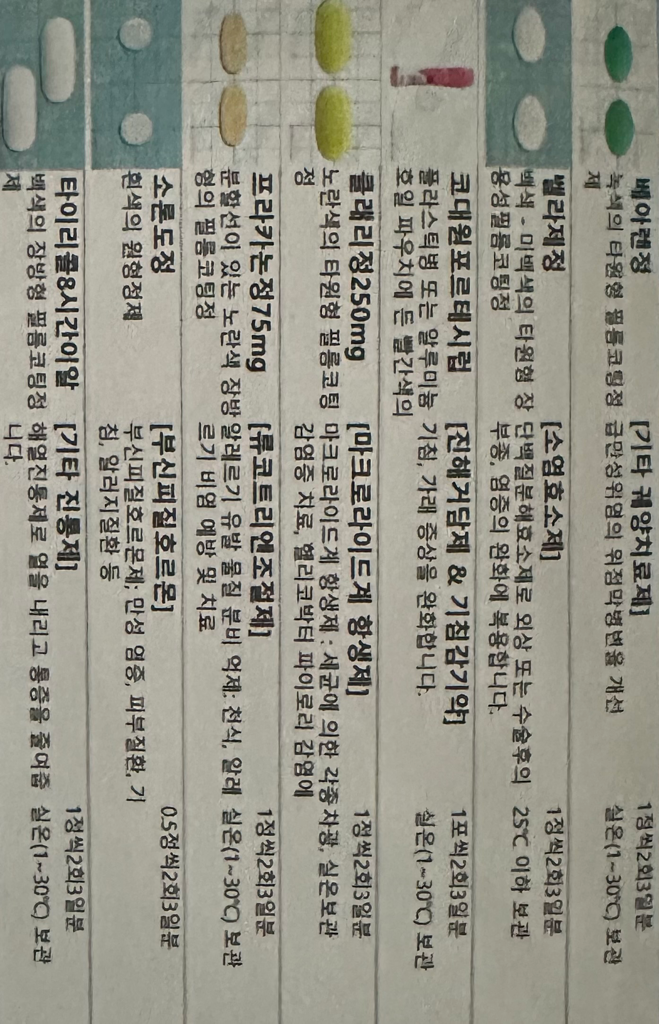 베아렌정
녹색의 타원형 필름코팅정
제
[기타 궤양치료제]
급만성위염의 위점막병변을 개선
1정씩2회3일분
실온(1~30℃) 보관
벨라제정
백색 - 미백색의 타원형 장
용성필름코팅정
[소염효소제]
단백질분해효소제로 외상 또는 수술후의
부종, 염증의 완화에 복용합니다.
1정씩2회3일분
25℃ 이하 보관
코대원포르테시럽
플라스틱병 또는 알루미늄
호일 파우치에 든 빨간색의
[진해거담제 & 기침감기약]
기침, 가래 증상을 완화합니다.
1포씩2회3일분
실온(1~30℃) 보관
클래리정250mg
노란색의 타원형 필름코팅
정
[마크로라이드계 항생제]
마크로라이드계 항생제 : 세균에 의한 각종
감염증 치료, 헬리코박터 파이로리 감염에
1정씩2회3일분
차광, 실온보관
프라카논정75mg
분할선이 있는 노란색 장방
형의 필름코팅정
[류코트리엔조절제]
알러르기 유발 물질 분비 억제: 천식, 알레
르기 비염 예방 및 치료
1정씩2회3일분
실온(1~30℃) 보관
소론도정
흰색의 원형정제
[부신피질호르몬]
부신피질호르몬제; 만성 염증, 피부질환, 기
침, 알러지질환 등
0.5정씩2회3일분
타이리콜8시간이알
백색의 장방형 필름코팅정
제
[기타 진통제]
해열진통제로 열을 내리고 통증을 줄여줍
니다.
1정씩2회3일분
실온(1~30℃) 보관